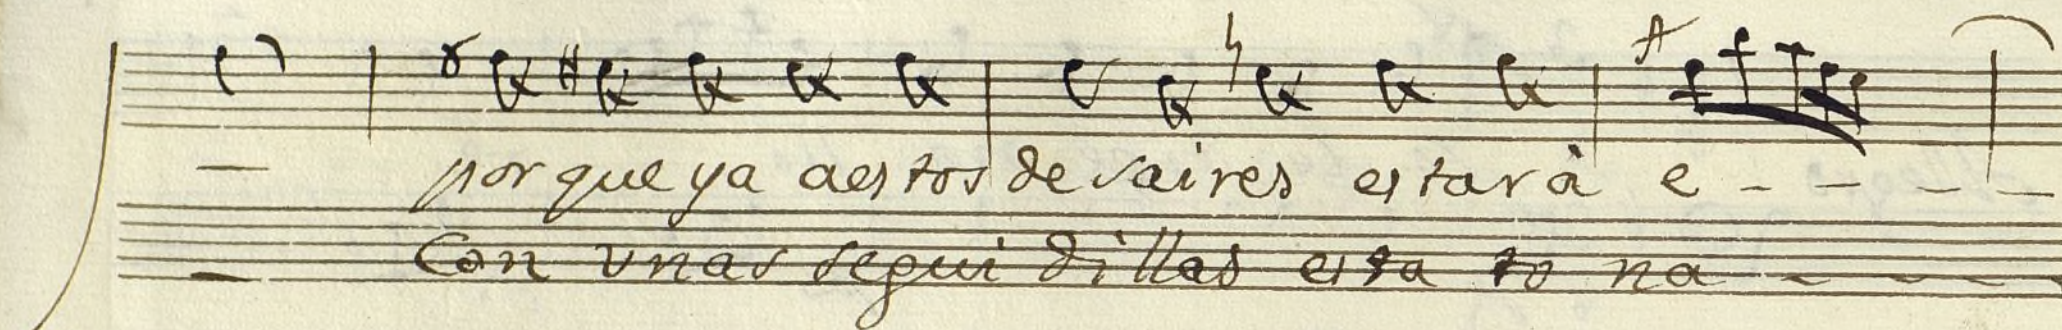 por que ya aes tos de sai res es tarà e - - - -
Con unas segui di llas es ta to na - - - -